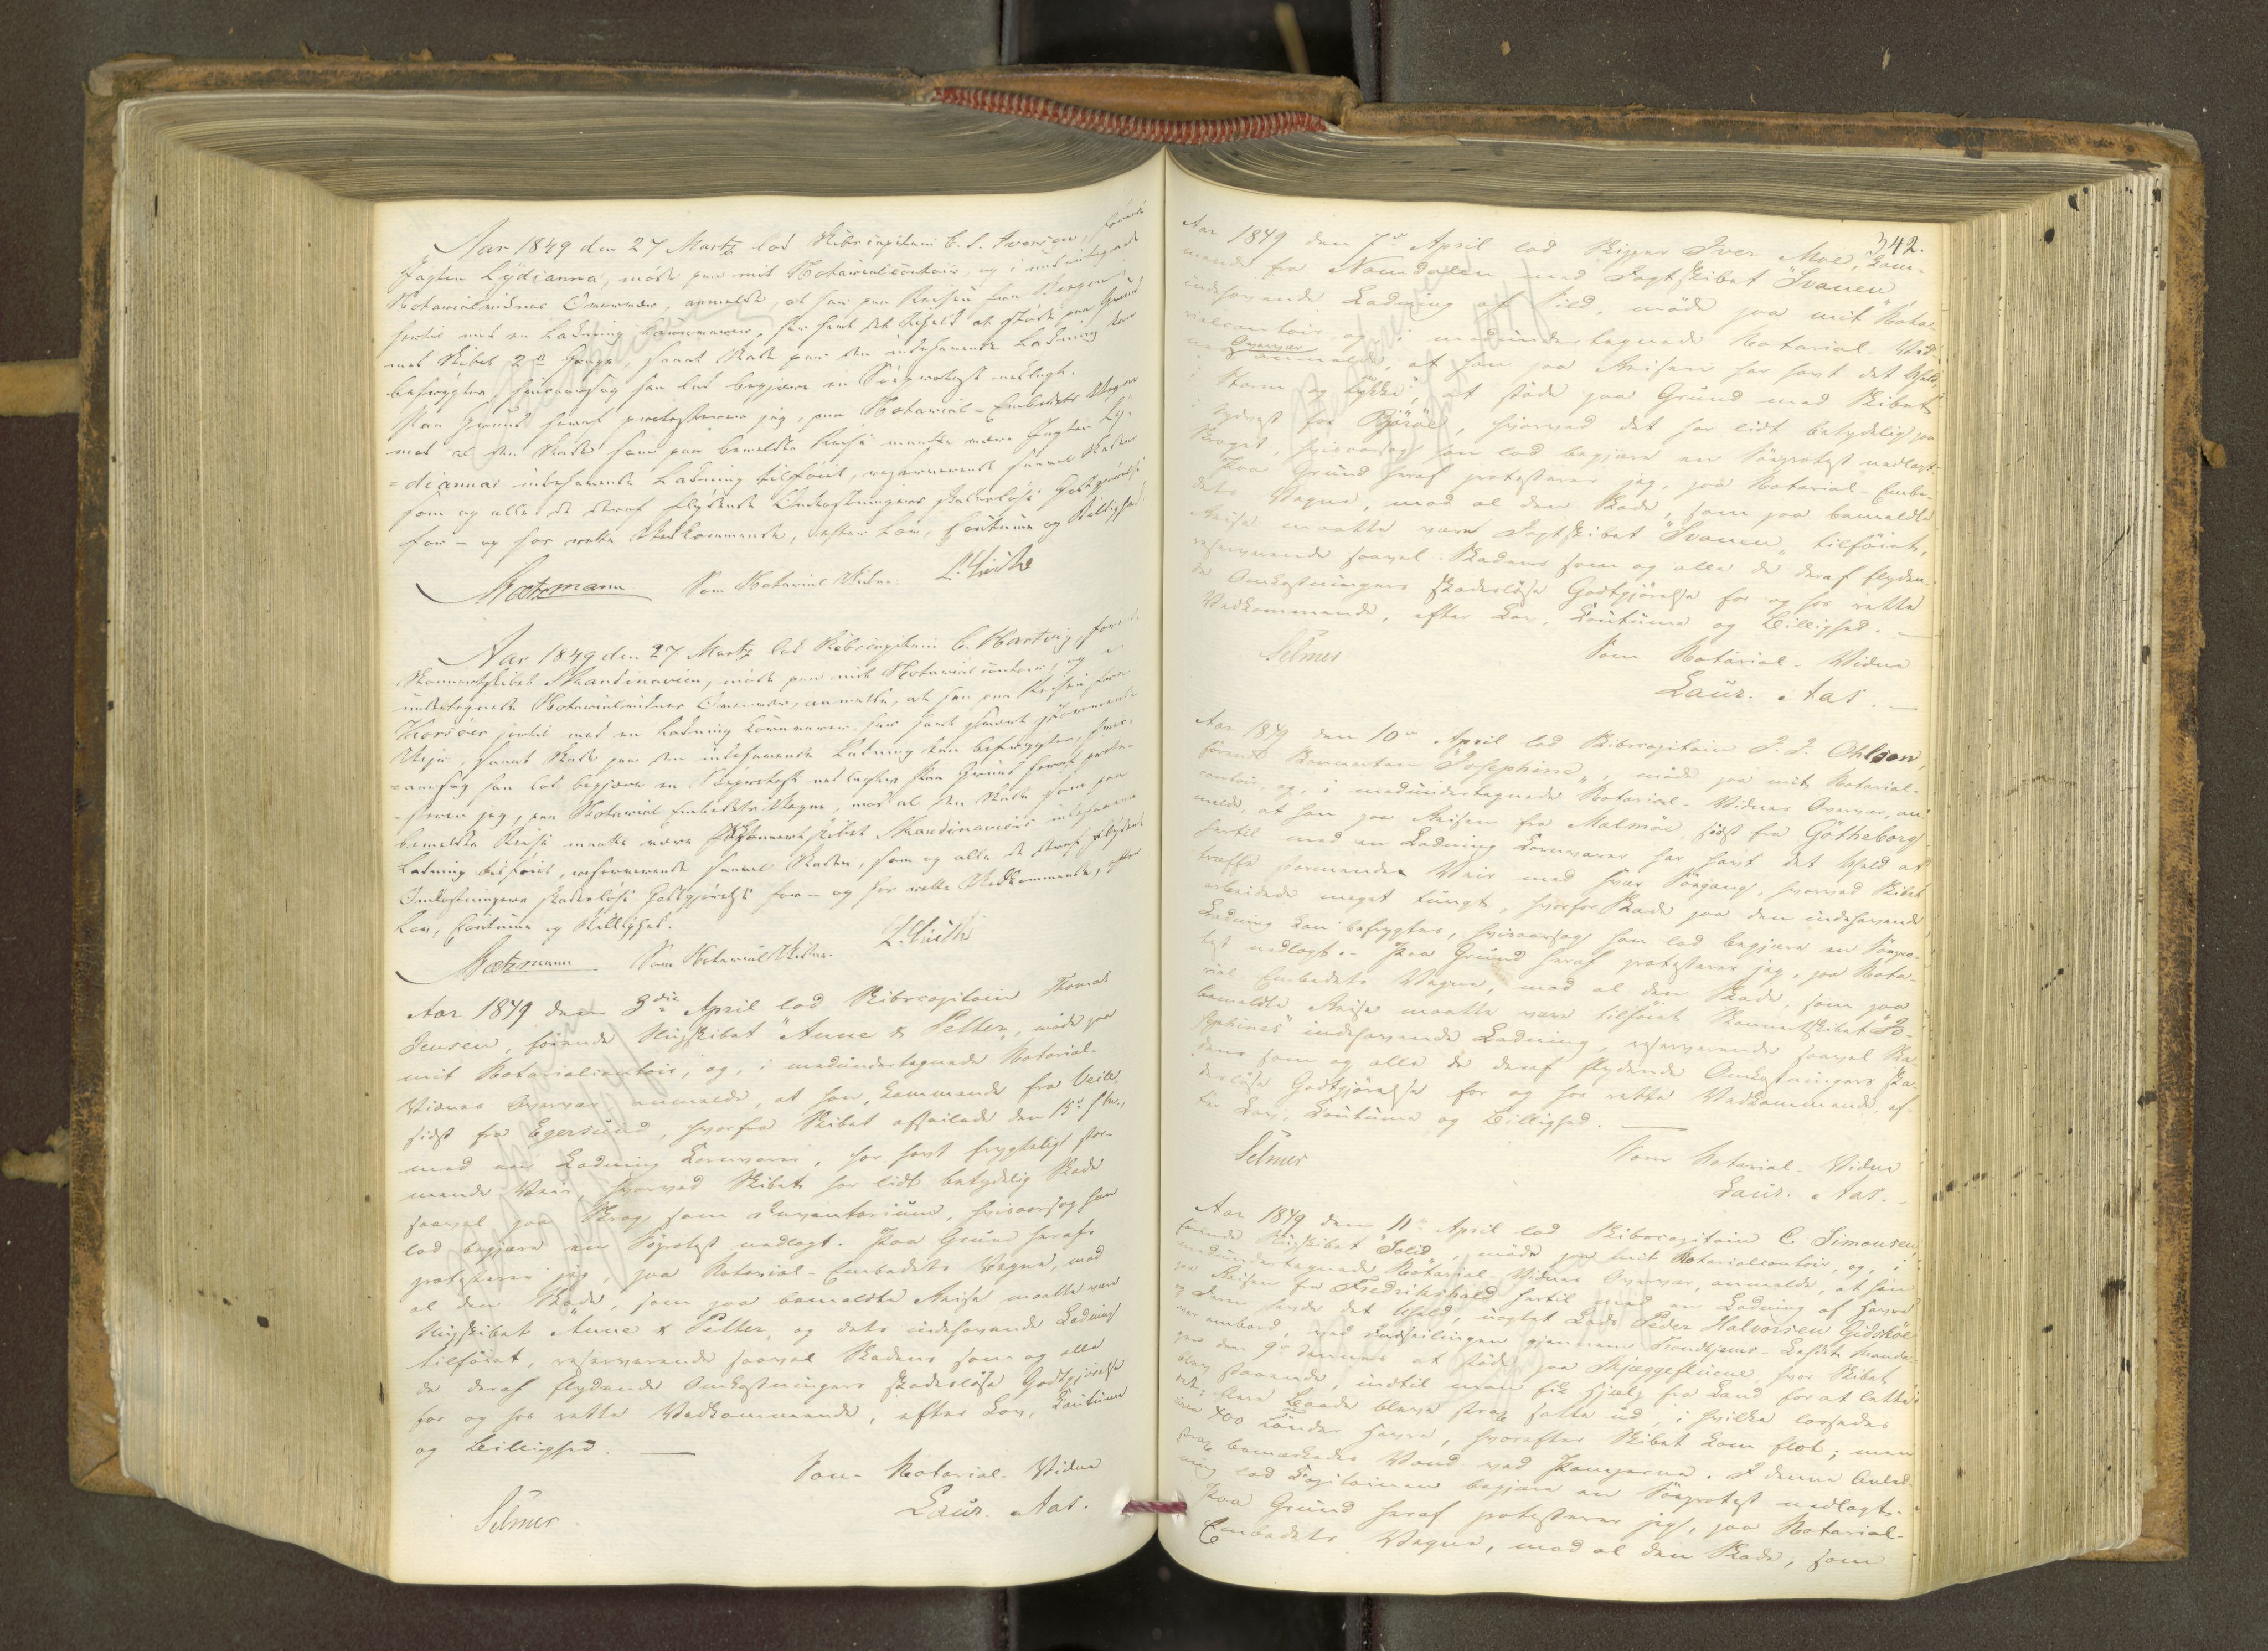 Aar 1849 den 27 Martz lod Skibscapitain C. S. Iversen, førende
Jagten Lydianna, møde paa mit Notarialcontoir, og i medundertegnede
Notarialvidnes Overvær, anmelde, at han paa Reisen fra Bergen
hertil med en Ladning Kornvarer, har havt det Uheld at støde paa Grund
med Skibet 2de Gange, hvorat Skade paa den indehavende Ladning kan
befrygtes, hvisaarsag han lod begjære en Søeprotest nedlagt.
Paa Grund heraf protesterer jeg, paa Notarial-Embedets Vegne
mod al den Skade som paa bemeldte Reise maatte være Jagten Ly-
=diannas indehavende Ladning tilføiet, reserverende saavel Skaden
som og alle de deraf flydende Omkostningers skadesløse Godtgjørelse
for - og hos rette Vedkommende, efter Lov, Coutume og Billighed.
Som Notarial Vidne.
Aar 1849 den 27 Martz lod Skibscapitain C. Hartvig, førende
Skonnertskibet Skandinavien, møde paa mit Notarialcontoir, og i
undertegnede Notarialvidnes Overvær, anmelde, at han paa Reisen fra
Korsöer hertil med en Ladning Kornvarer har havt svært stormende
Veir, hvorat Skade paa den indehavende Ladning kan befrygtes, hvis-
=aarsag han lod begjære en Søeprotest nedlagt. Paa Grund heraf prote-
=sterer jeg, paa Notarial Embedets Vegne, mod al den Skade som paa
bemeldte Reise maatte være Skonnertskibet Skandinaviens indehavende
Ladning tilføiet, reserverende saavel Skaden, som og alle de deraf flydende
Omkostningers skadesløse Godtgjørelse for - og hos rette Vedkommende, efter
Lov, Coutume og Billighed.
Som Notarial Vidne.
Aar 1849 den 3die April lod Skibscapitain Thomas
Jensen, förende Kufskibet "Anne & Petter", møde paa
mit Notarialcontoir, og, i medundertegnede Notarial-
Vidnes Overvær, anmelde, at han, kommende fra Veile,
sidst fra Egersund, hvorfra Skibet afseilede den 15de f. M.,
med en Ladning Kornvarer, har havt frygteligt stor-
mende Veir, hvorved Skibet har lidt betydelig Skade
saavel paa Skrog som Inventarium, hvisaarsag han
lod begjære en Söprotest nedlagt. Paa Grund heraf
protesterer jeg, paa Notarial-Embedets Vegne, mod
al den Skade, som paa bemeldte Reise maatte være
Kufskibet Anne & Petter og dets indehavende Ladning
tilföiet, reserverende saavel Skadens som og alle
de deraf flydende Omkostningers skadeslöse Godtgjörelse
for og hos rette Vedkommende, efter Lov, Coutume
og Billighed.
Som Notarial-Vidne
Selmer
Laur. Aas.
342.
Aar 1849 den 7de April lod Skipper Iver Moe, kom-
mende fra Namdalen med Jagtskibet "Svanen"
indehavende Ladning af Sild, möde paa mit Nota-
rialcontoir og i medundertegnede Notarial-Vid-
nes Overvær anmelde, at han paa Reisen har havt det Uheld
i Storm og Tykke, at støde paa Grund med Skibet
i Sydvest for Björöe, hvorved det har lidt betydelig paa
Skroget, hvisaarsag han lod begjære en Söeprotest nedlagt.
Paa Grund heraf protesterer jeg, paa Notarial-Embe-
dets Vegne, mod al den Skade, som paa bemeldte
Reise maatte være Jagtskibet "Svanen" tilföiet,
reserverende saavel Skadens som og alle de deraf flyden-
de Omkostningers skadeslöse Godtgjörelse for og hos rette
Vedkommende, efter Lov, Coutume og Billighed.
Selmer
Som Notarial-Vidne
Laur. Aas.
Aar 1849 den 10de April lod Skibscapitain J. J. Ohlson,
förende Skonnerten "Josephine", möde paa mit Notarial-
contoir, og, i medundertegnede Notarial-Vidnes Overvær, an-
melde, at han paa Reisen fra Malmöe, sidst fra Götheborg
hertil med en Ladning Kornvarer har havt det Uheld at
træffe stormende Veir med svær Söegang, hvorved Skibet
arbeidede meget tungt, hvorfor Skade paa den indehavende
Ladning kan befrygtes, hvisaarsag han lod begjære en Söepro-
test nedlagt.- Paa Grund heraf protesterer jeg, paa Nota-
rial Embedets Vegne, mod al den Skade, som paa
bemeldte Reise maatte være tilföiet Skonnertskibet "Jo-
sephines" indehavende Ladning, reserverende saavel Ska-
dens som og alle de deraf flydende Omkostningers ska-
deslöse Godtgjörelse for og hos rette Vedkommende, ef-
ter Lov, Coutume og Billighed.
Selmer
Som Notarial-Vidne
Laur. Aas.
Aar 1849 den 11te April lod Skibscapitain C. Simonsen,
förende Kufskibet "Solid", möde paa mit Notarialcontoir, og, i
medundertegnede Notarial-Vidnes Overvær, anmelde, at han
paa Reisen fra Fredrikshald hertil med en Ladning af Havre
havde det Uheld, uagtet Lods Peder Halvorsen Gidsköe
var ombord, ved Indseilingen gjennem Trondhjems-Leden
den 9de dennes at støde paa Skjæggefluene, hvor Skibet
blev staaende, indtil man fik Hjelp fra Land for at lette
det; flere Baade bleve strax satte ud, i hvilke lossedes
circa 400 Tönder Havre, hvorefter Skibet kom flot; men
strax bemærkedes Vand ved Pomperne. I denne Anled-
ning lod Capitainen begjære en Söeprotest nedlagt.
Paa Grund heraf protesterer jeg, paa Notarial-
Embedets Vegne, mod al den Skade, som